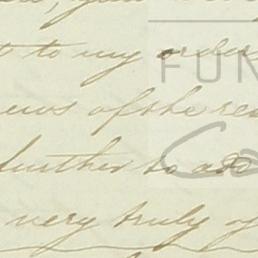 t to my order
ews of the re
further to ad
very truly y
FUN